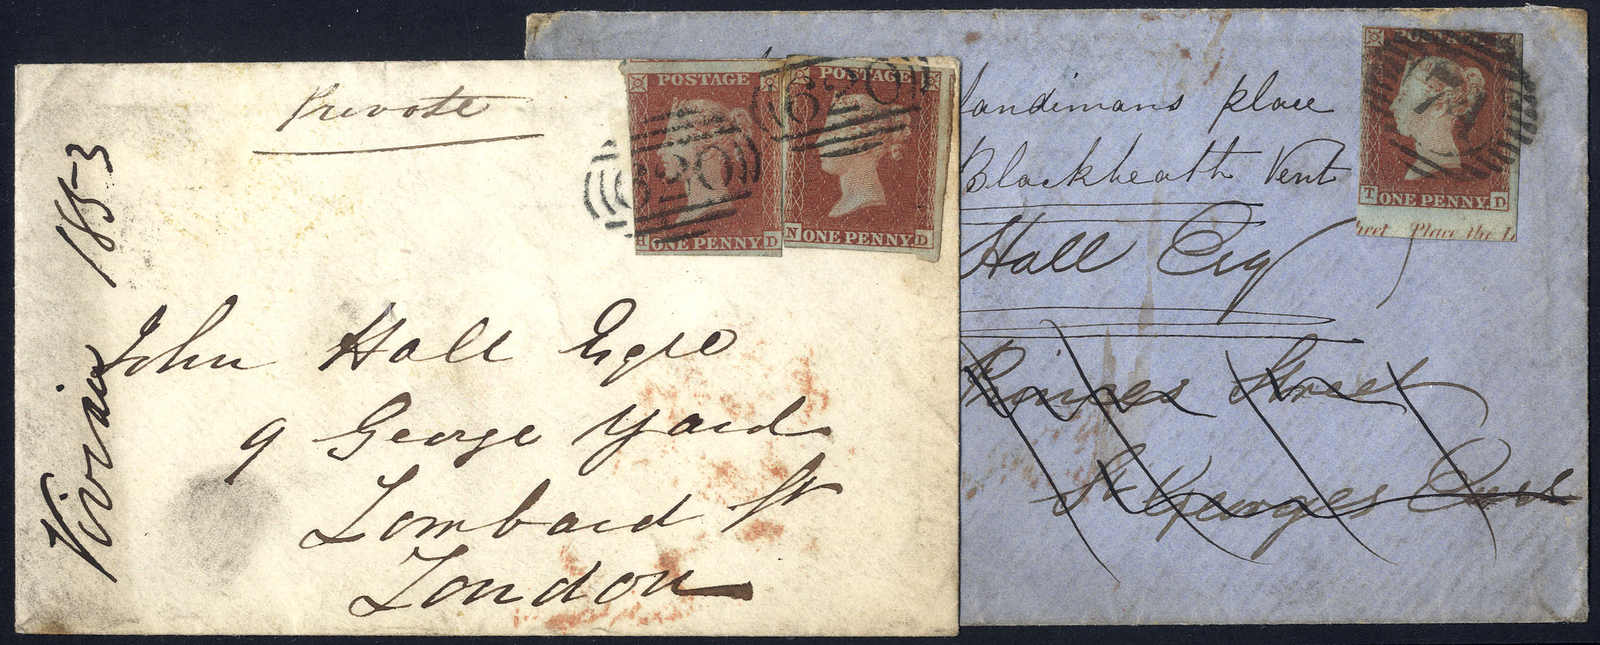 Private
Vivian 1853
POSTAGE
H ONE PENNY D
POSTAGE
N ONE PENNY D
620
620
John Hall Esqre
9 George Yard
Lombard St
London
POSTAGE
T ONE PENNY D
Place the L
landimans place
Blackheath Vent
Hall Esq
Princes Street
St Georges